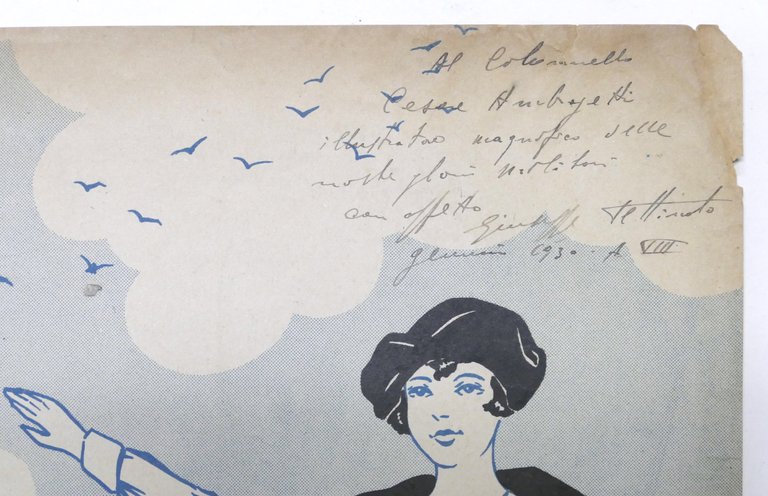 Al Colonnello
Cesare Ambrogetti
illustratore magnifico delle
nostre glorie militari
con affetto
Giuseppe
gennaio 1930 - A VIII